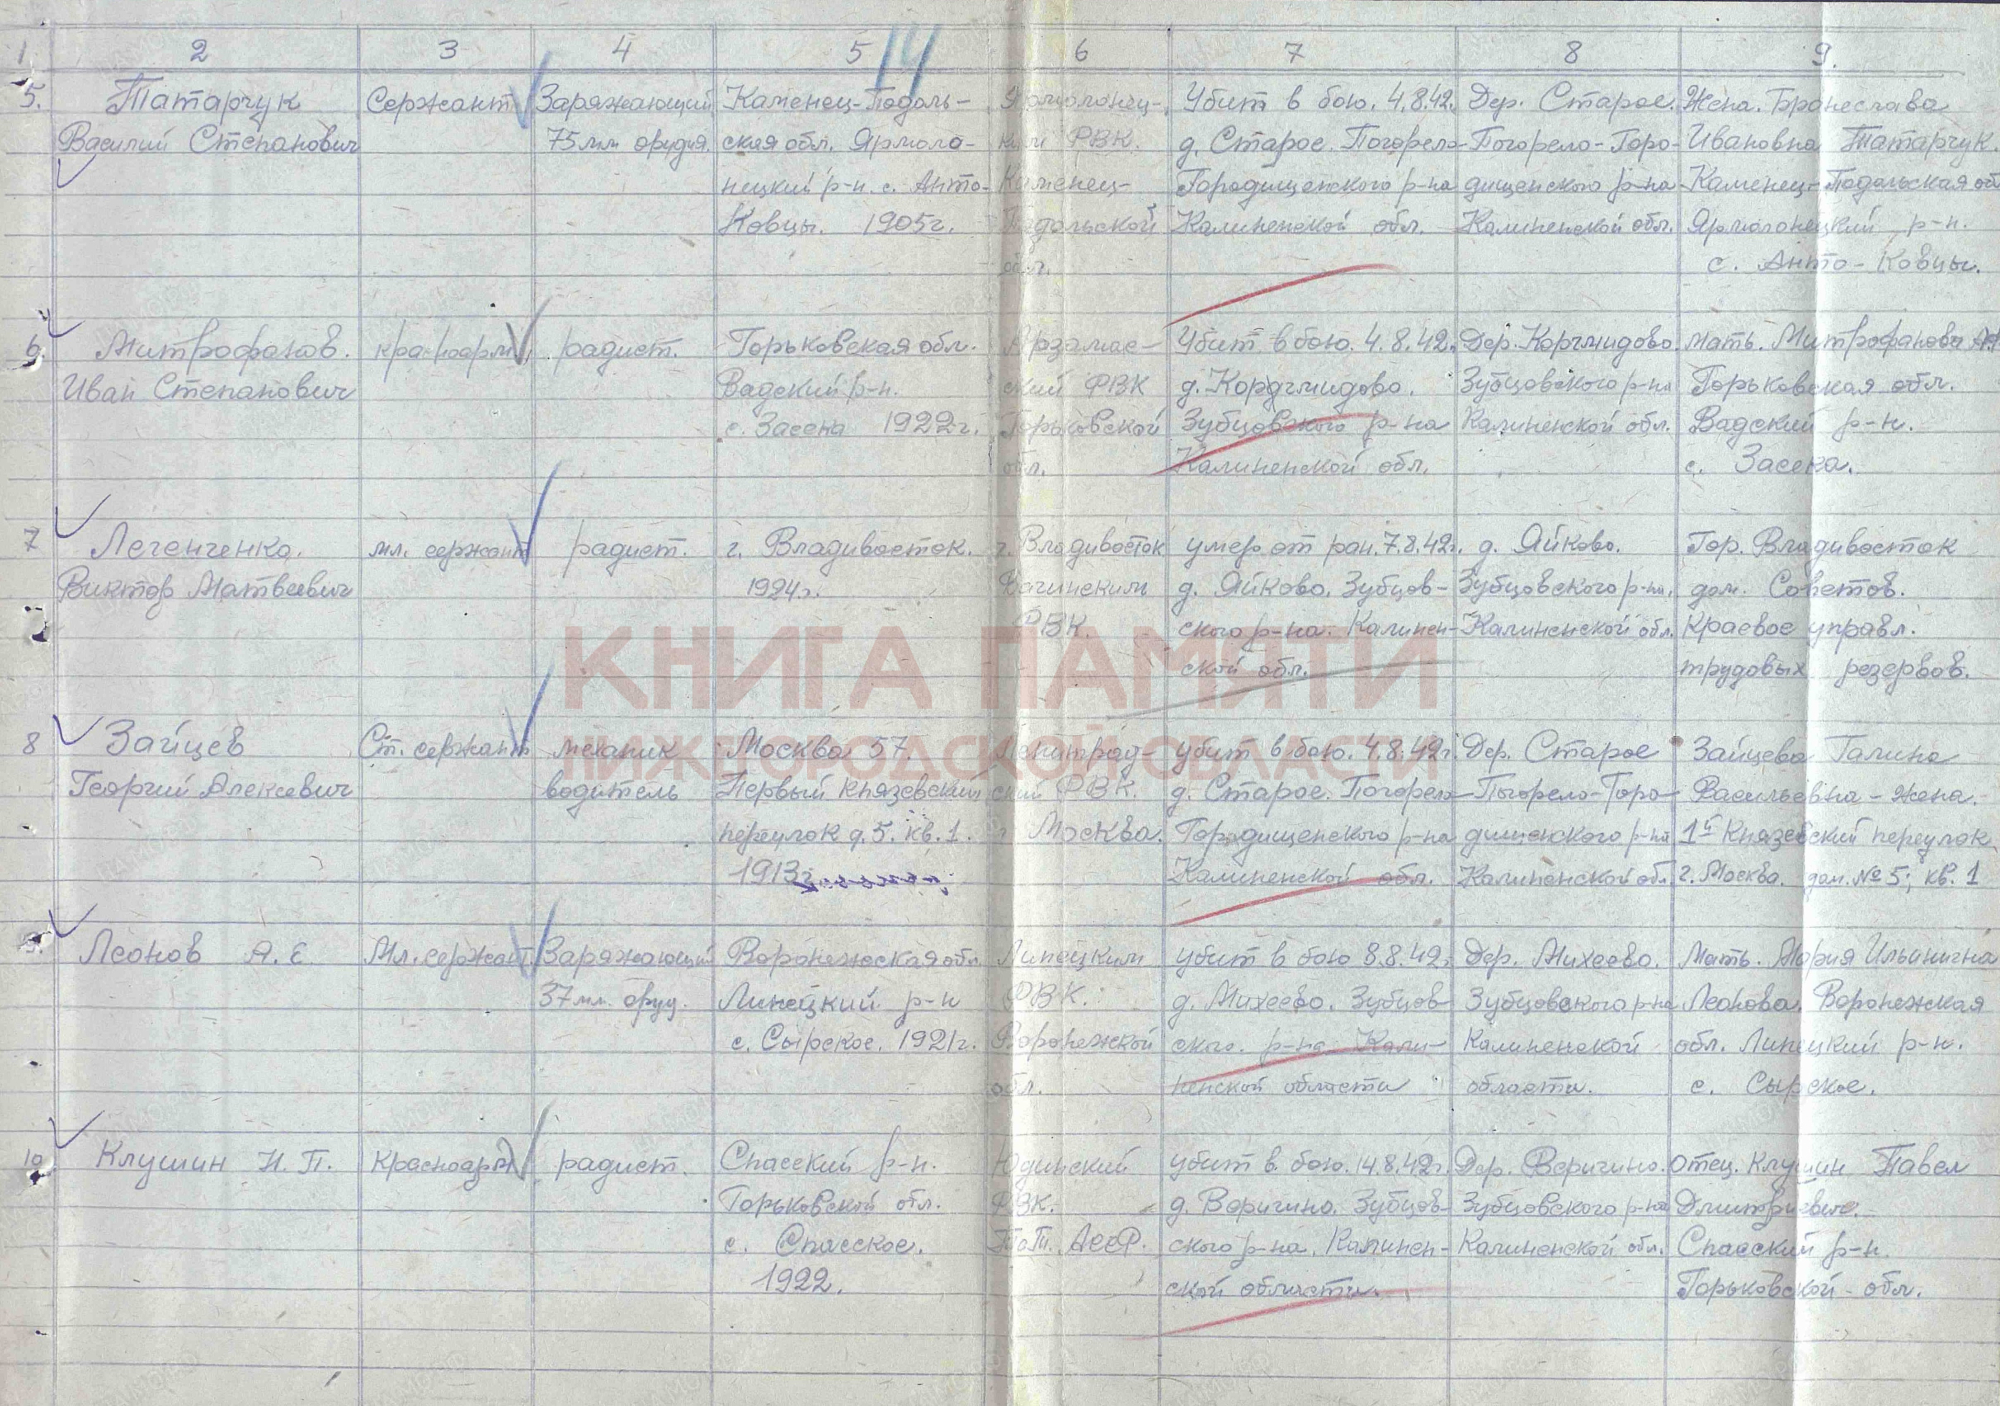 1 2 3 4 5 6 7 8 9.
14
5. Татарчук Сержант Заряжающий Каменец-Подоль- Ярмолонец- Убит в бою. 4.8.42. Дер. Старое. Жена. Бронеслава
Василий Степанович 75 мм орудия. ская обл. Ярмоло- ким РВК. д. Старое. Погорело- Погорело-Горо- Ивановна Татарчук.
нецкий р-н. с. Анто- Каменец- Городищенского р-на дищенского р-на Каменец-Подольская об
Ковцы. 1905г. Подольской Калиненской обл. Калиненской обл. Ярмолонецкий р-н.
обл. с. Анто-Ковцы.
6. Митрофанов. красноарм. радист. Горьковская обл. Арзамас- Убит в бою. 4.8.42. Дер. Коргмидово мать. Митрофанова
Иван Степанович Вадский р-н. ский РВК д. Кордгмидово. Зубцовского р-на Горьковская обл.
с. Засека 1922г. Горьковской Зубцовского р-на Калиненской обл. Вадский р-н.
обл. Калиненской обл. с. Засека.
7 Легенченко. мл. сержант радист. г. Владивосток. г. Владивосток умер от ран. 7.8.42г. д. Яйково. Гор. Владивосток
Виктор Матвеевич 1924г. РВК. д. Яйково. Зубцов- Зубцовского р-на. дом. Советов.
ского р-на. Калинен- Калиненской обл. Краевое управл.
ской обл. трудовых резервов.
КНИГА ПАМЯТИ
НИЖЕГОРОДСКОЙ ОБЛАСТИ
8 Зайцев Ст. сержант механик Москва 57. Ленинград- убит в бою. 4.8.42г. Дер. Старое Зайцева Галина
Георгий Алексеевич водитель Первый Князевский ский РВК. д. Старое. Погорело- Погорело-Горо- Васильевна - жена.
переулок д. 5. кв. 1. г. Москва. Городищенского р-на дищенского р-на 1й Князевский переулок
1913г. Калиненской обл. Калиненской обл. г. Москва. дом. №5; кв. 1
9. Леонов А. Е. Мл. сержант Заряжающий Воронежская обл. Липецким убит в бою 8.8.42г. Дер. Михеево. Мать. Мария Ильинична
37 мм. оруд. Липецкий р-н РВК. д. Михеево. Зубцов- Зубцовского р-на Леонова. Воронежская
с. Сырское. 1921г. Воронежской ского. р-на Кали- Калиненской обл. Липецкий р-н.
обл. ненской области области. с. Сырское.
10 Клушин Н. П. Красноарм радист. Спасский р-н. Юдинский убит в бою. 14.8.42г. Дер. Веригино. Отец. Клушин Павел
Горьковской обл. РВК. д. Веригино. Зубцов- Зубцовского р-на Дмитриевич.
с. Спасское. Тат. АССР. ского р-на. Калинен- Калиненской обл. Спасский р-н.
1922. ской области. Горьковской - обл.